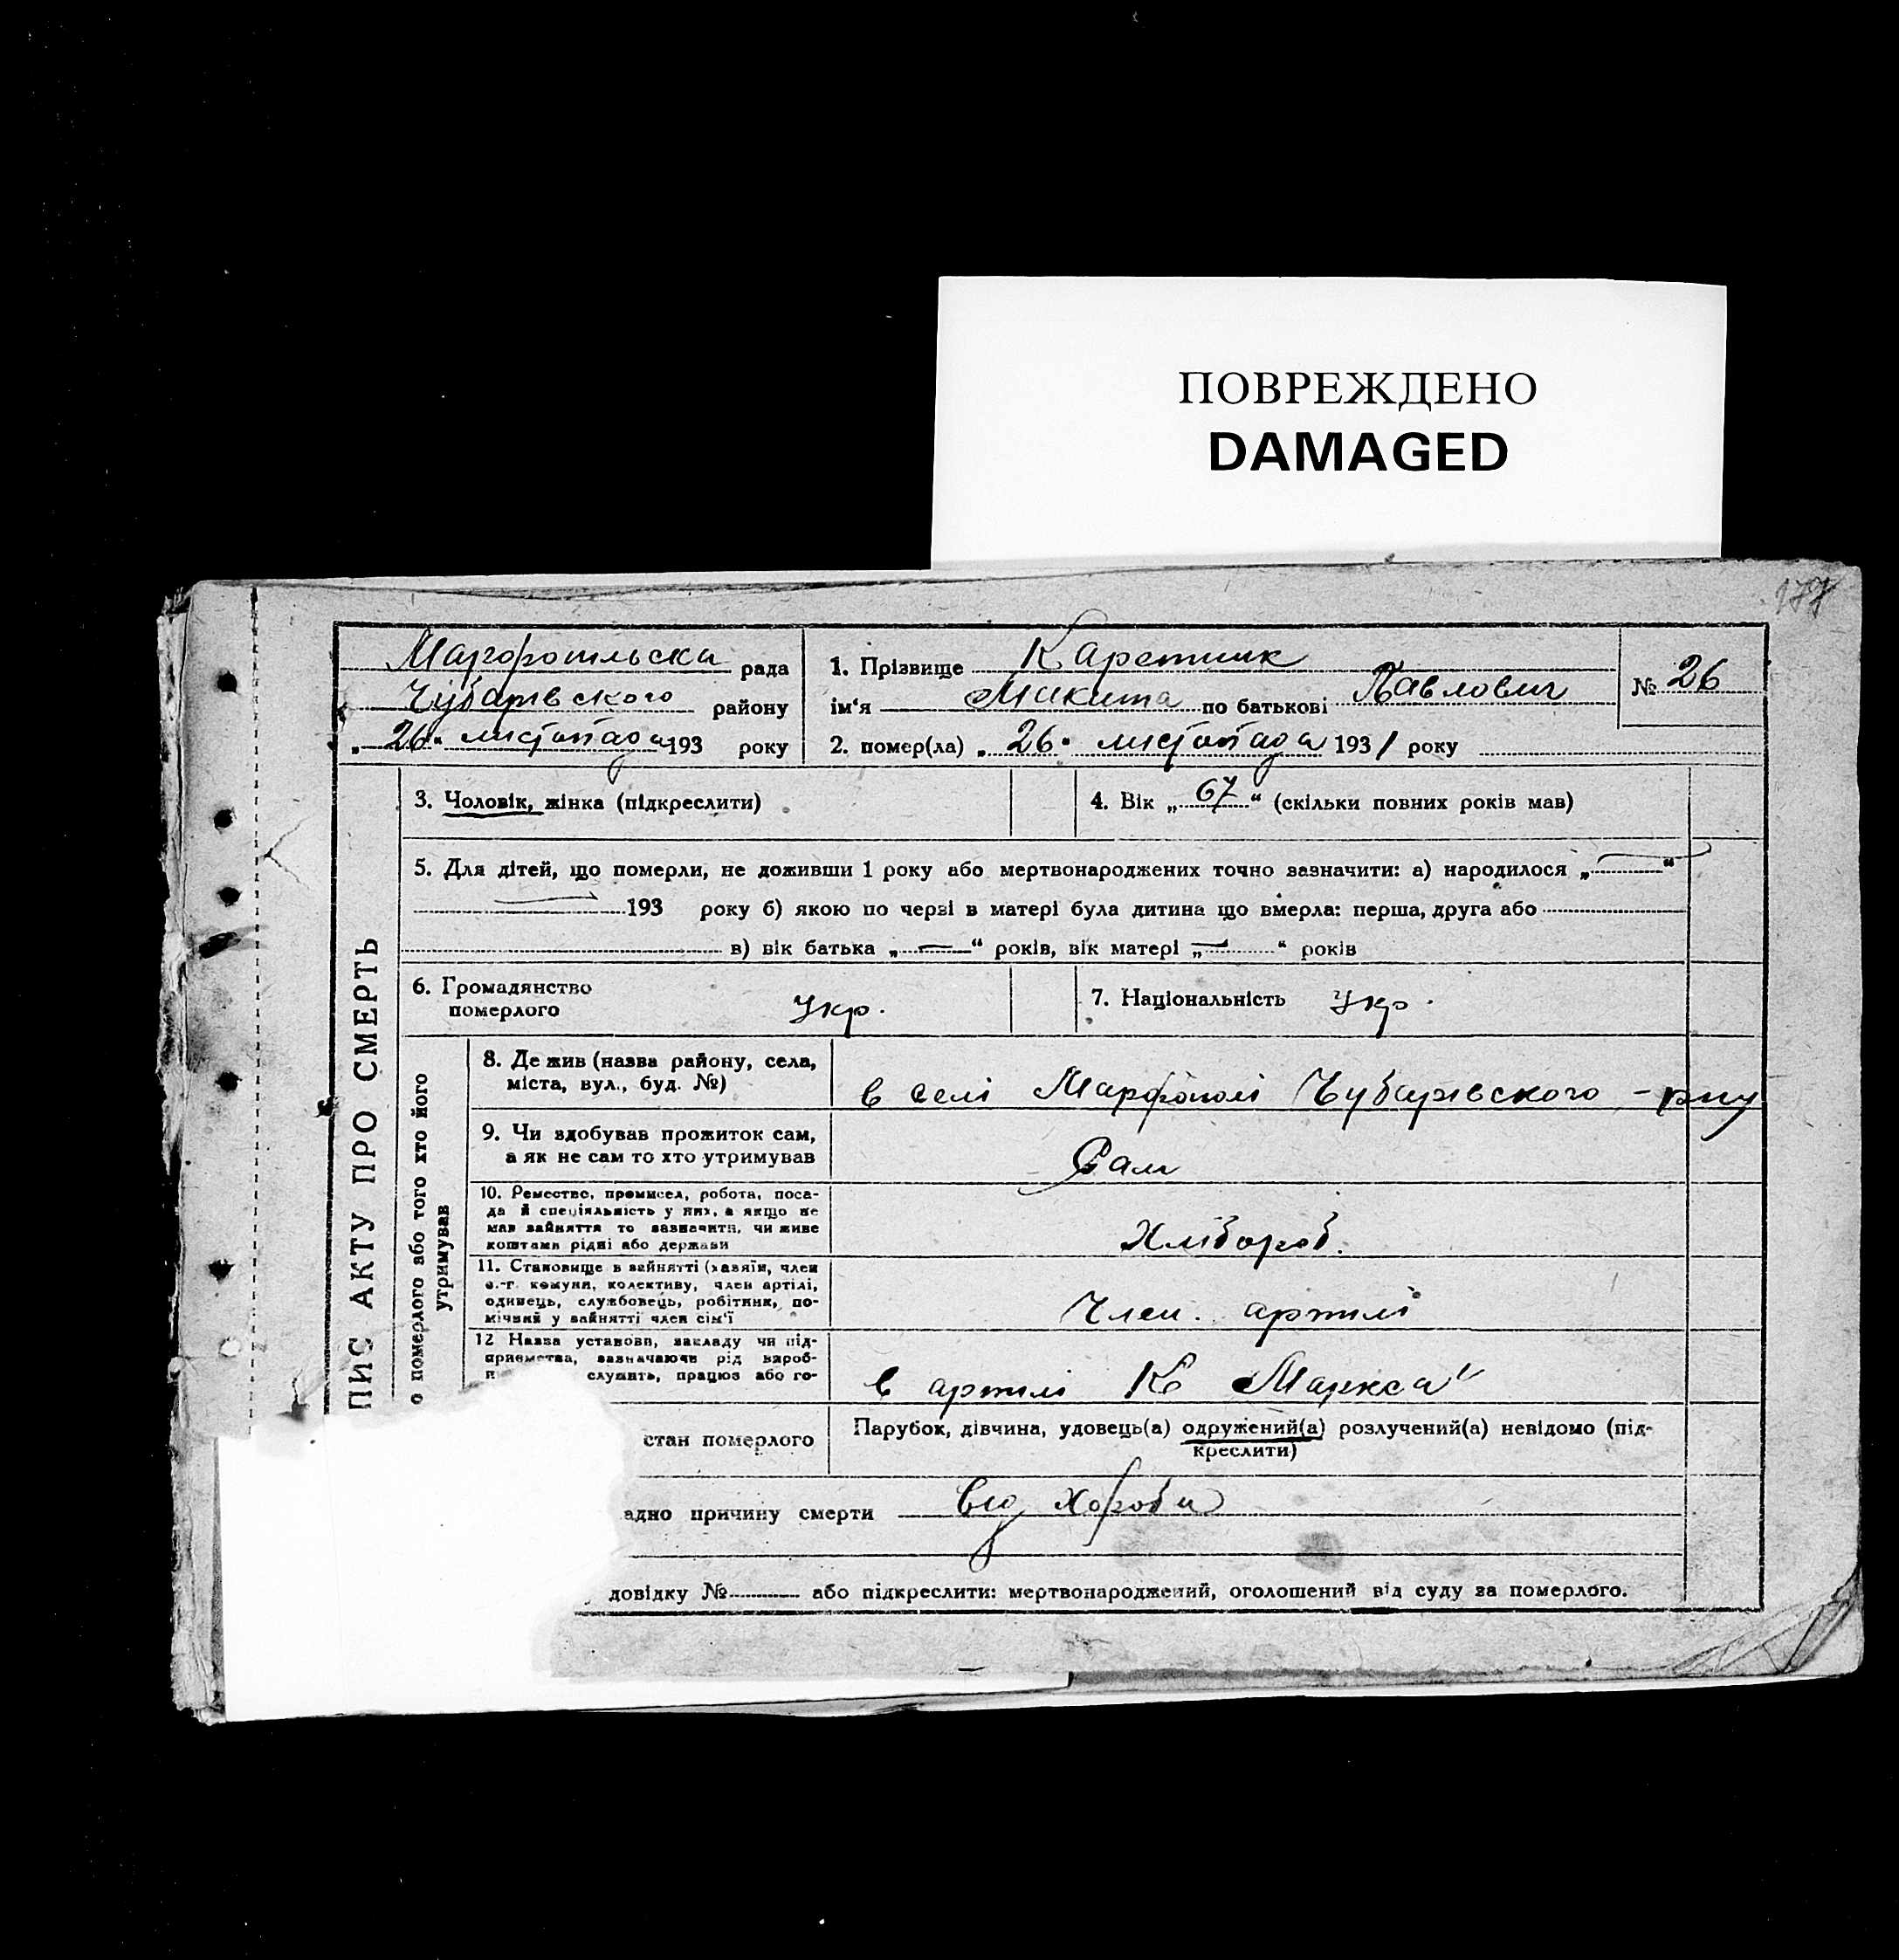 ПОВРЕЖДЕНО
DAMAGED
177
Марфопільська рада
Чубарівського району
„ 26 " листопада 193 року
1. Прізвище Каретник
ім'я Микита по батькові Павлович
№ 26
2. помер(ла) „ 26 " листопада 1931 року
ПИС АКТУ ПРО СМЕРТЬ
3. Чоловік, жінка (підкреслити)
4. Вік „ 67 " (скільки повних років мав)
5. Для дітей, що померли, не доживши 1 року або мертвонароджених точно зазначити: а) народилося „ — "
— 193 року б) якою по черзі в матері була дитина що вмерла: перша, друга або
в) вік батька „ — " років, вік матері „ — " років
6. Громадянство
померлого
Укр.
7. Національність Укр.
о померлого або того хто його
утримував
8. Де жив (назва району, села,
міста, вул., буд. №)
в селі Марфополі Чубарівського р-ну
9. Чи здобував прожиток сам,
а як не сам то хто утримував
Сам
10. Ремество, промисел, робота, поса-
да й спеціяльність у них, а якщо не
мав зайняття то зазначити, чи живе
коштами рідні або держави
Хлібороб.
11. Становище в зайнятті (хазяїн, член
с.-г. комуни, колективу, член артілі,
одинець, службовець, робітник, по-
мічний у зайнятті член сім'ї
Член. артілі
12 Назва установи, закладу чи під-
приємства, зазначаючи рід вироб-
служить, працює або го-
в артілі К Маркса"
стан померлого
Парубок, дівчина, удовець(а) одружений(а) розлучений(а) невідомо (під-
креслити)
адно причину смерти від хороби
довідку № або підкреслити: мертвонароджений, оголошений від суду за померлого.